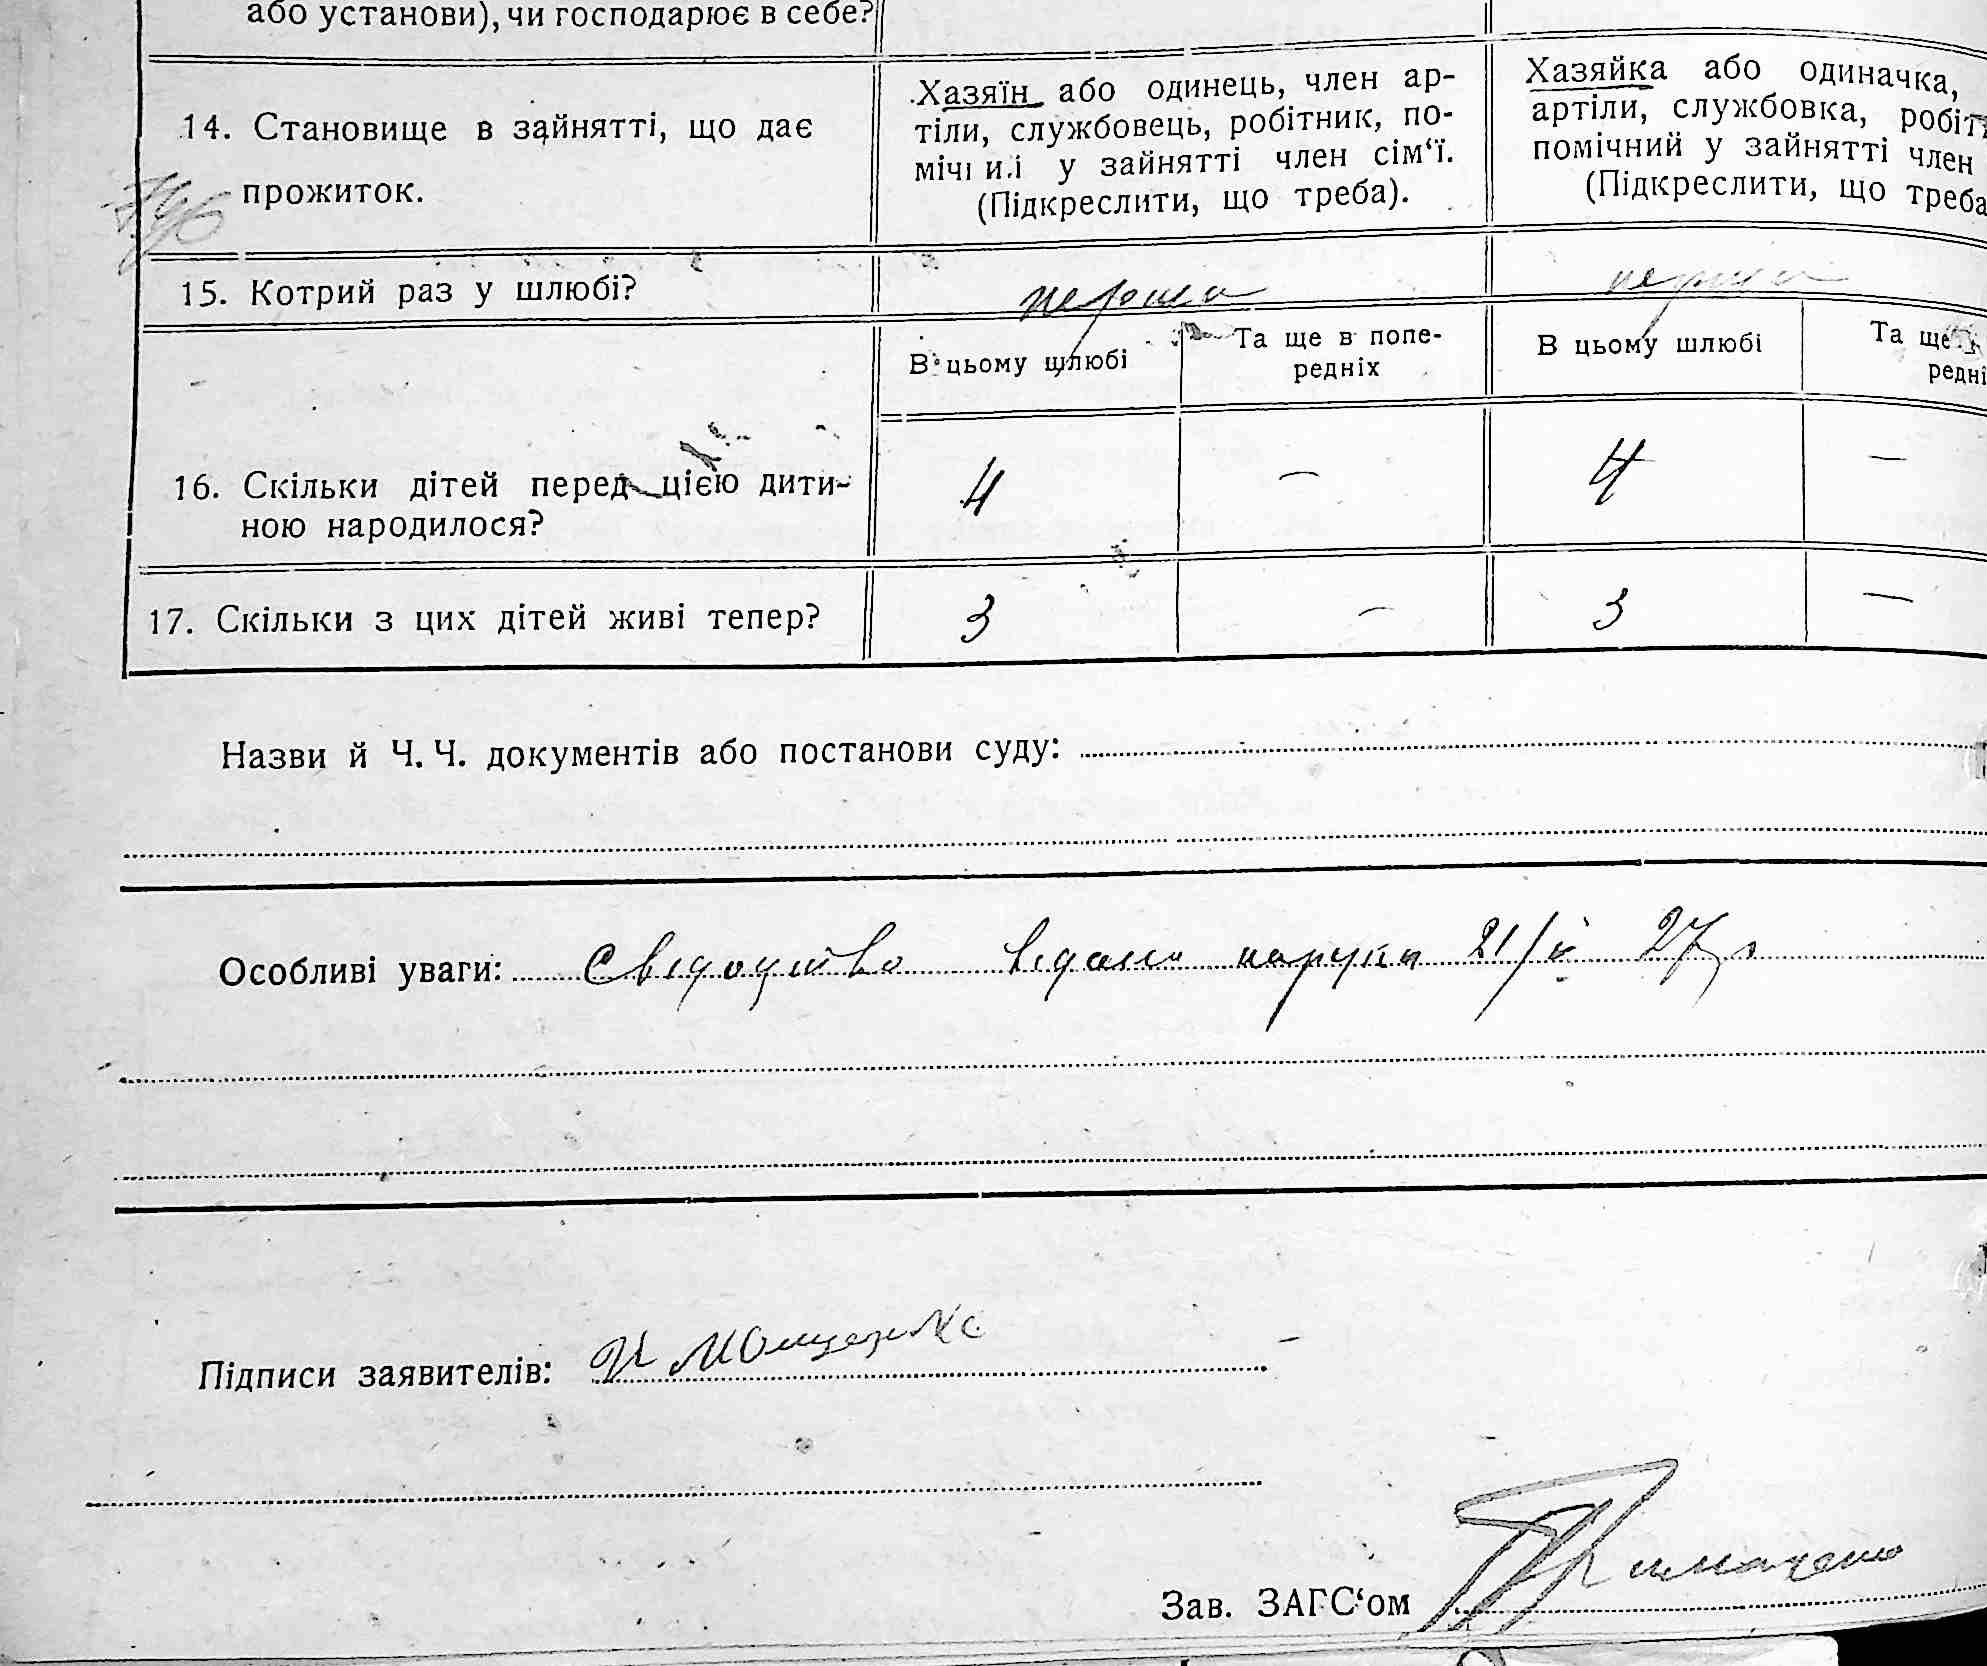 або установи), чи господарює в себе?
14. Становище в зайнятті, що дає
прожиток.
Хазяїн або одинець, член ар-
тіли, службовець, робітник, по-
мічний у зайнятті член сім‘ї.
(Підкреслити, що треба).
Хазяйка або одиначка,
артіли, службовка, робіт
помічний у зайнятті член
(Підкреслити, що треба
15. Котрий раз у шлюбі?
В цьому шлюбі
Та ще в попе-
редніх
В цьому шлюбі
Та ще
редні
16. Скільки дітей перед цією дити-
ною народилося?
4 — 4 —
17. Скільки з цих дітей живі тепер?
3 — 3 —
Назви й Ч. Ч. документів або постанови суду:
Особливі уваги: Свідоцтво відано на руки 21/V 27 р
Підписи заявителів:
Зав. ЗАГС‘ом